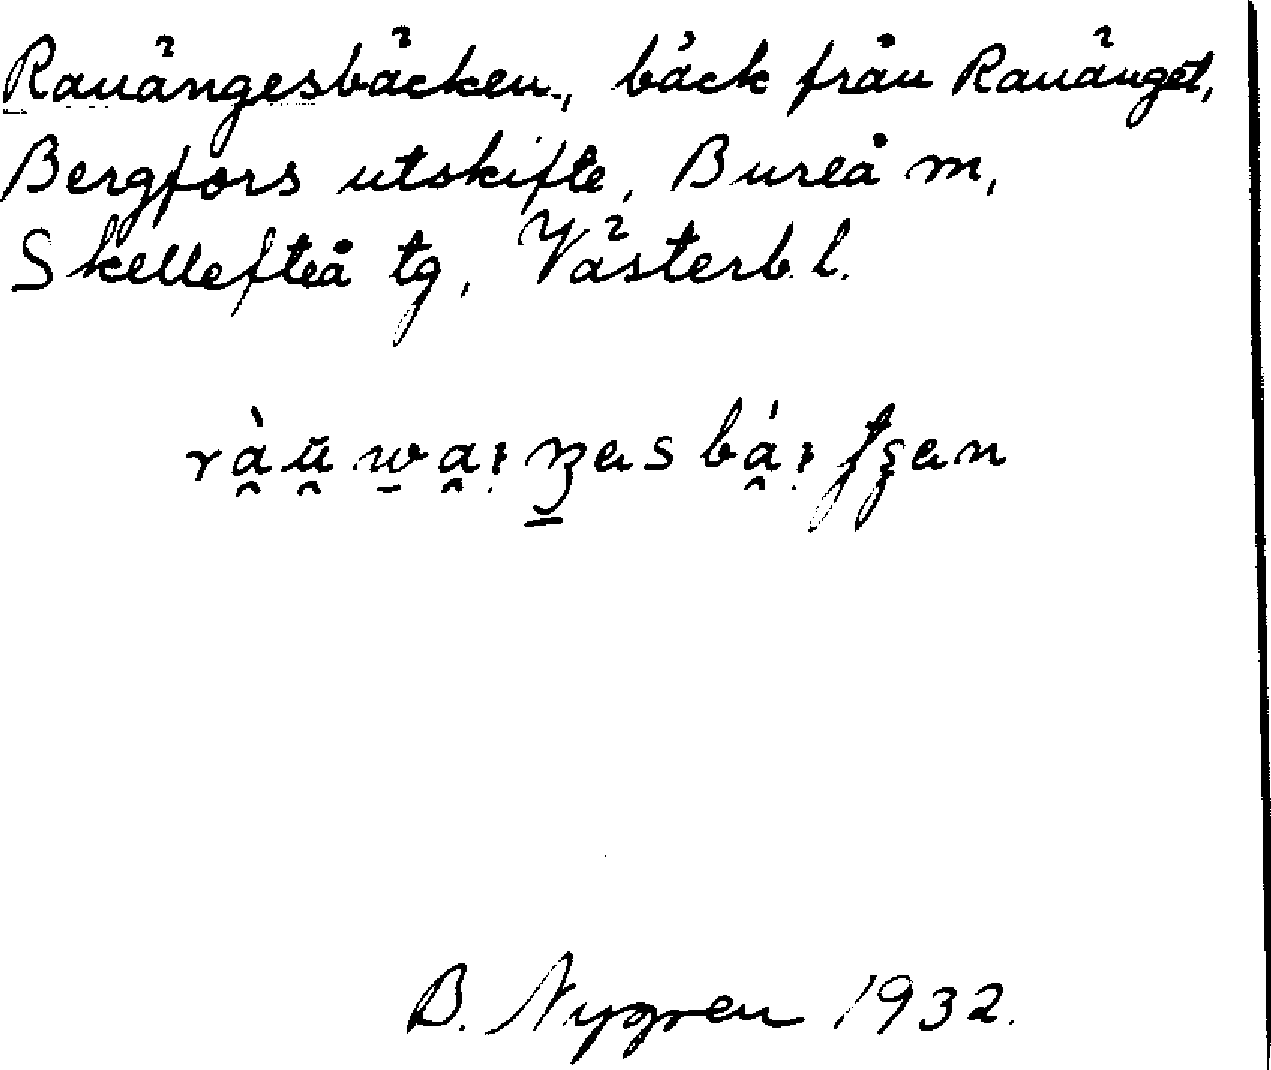 Rauängesbäcken, bäck från Rauänget,
Bergfors utskifte, Bureå m,
Skellefteå tg, Västerb. l.
B. Nygren 1932.